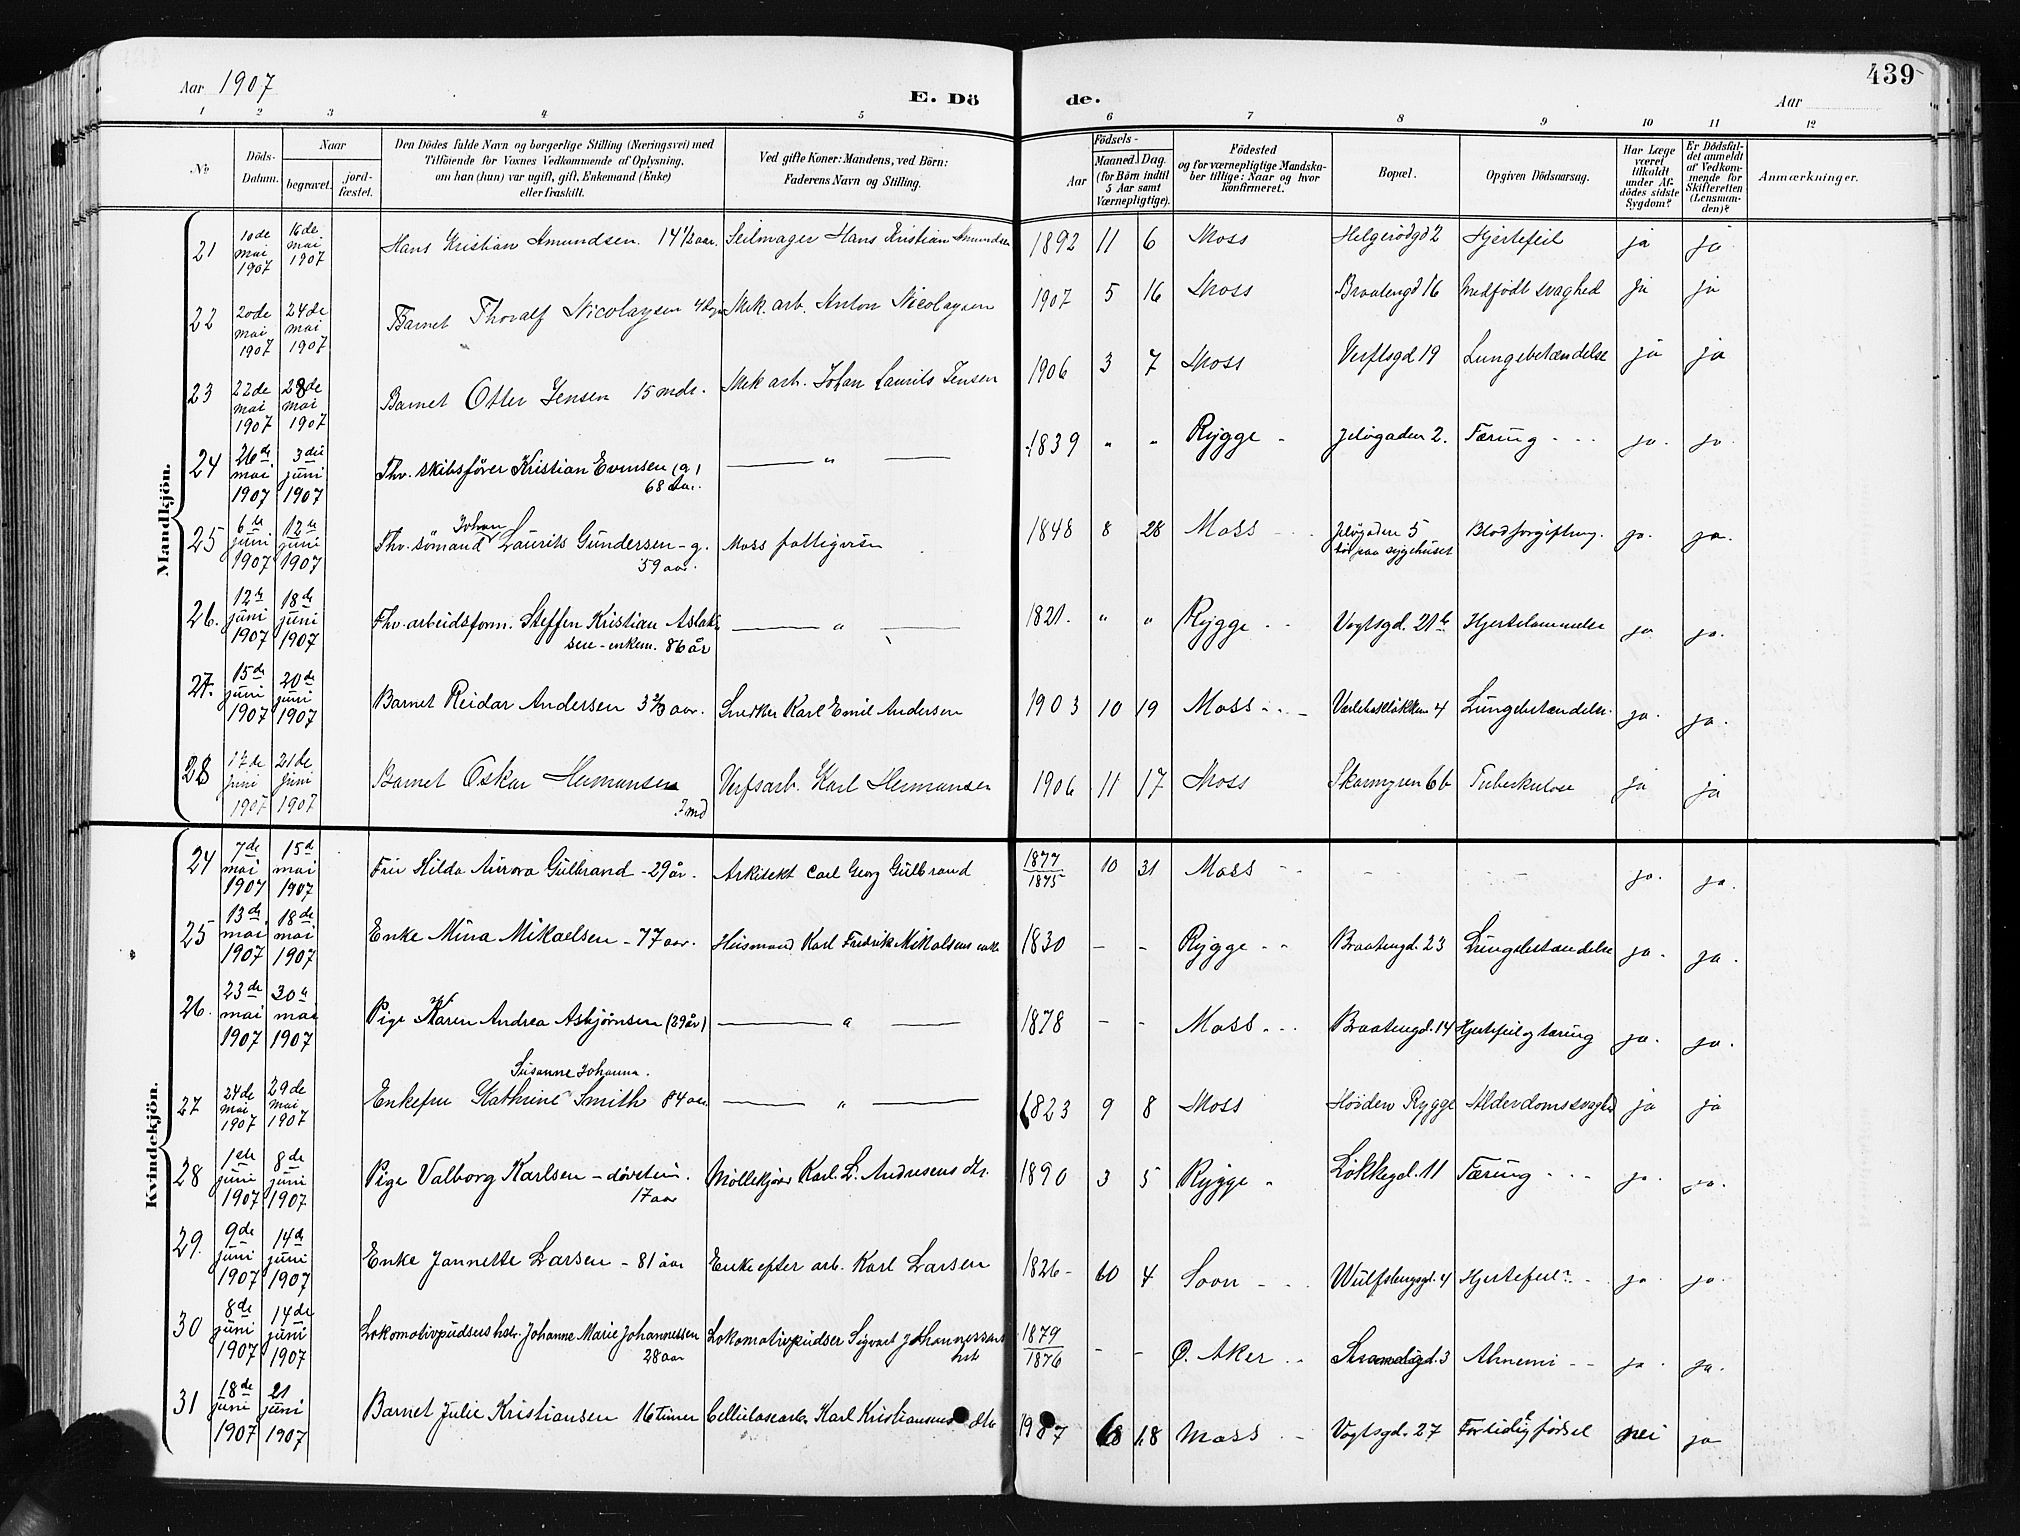 Aar 1907
E. Dö
de.
Aar
439
1 2 3 4 5 6 7 8 9 10 11 12
No.
Döds-Datum.
Naar
begravet.
jordfæstet.
Den Dödes fulde Navn og borgerlige Stilling (Næringsvei) med
Tilföiende for Voxnes Vedkommende af Oplysning,
om han (hun) var ugift, gift, Enkemand (Enke)
eller fraskilt.
Ved gifte Koner: Mandens, ved Börn:
Faderens Navn og Stilling.
Födsels-
Aar
Maaned. Dag.
(for Börn indtil
5 Aar samt
Værnepligtige).
Födested
og for værnepligtige Mandska-
ber tillige: Naar og hvor
konfirmeret.
Bopæl.
Opgiven Dödsaarsag.
Har Læge
været
tilkaldt
under Af-
dödes sidste
Sygdom?
Er Dödsfal-
det anmeldt
af Vedkom-
mende for
Skifteretten
(Lensman-
den)?
Anmærkninger.
Mandkjön.
21 10de mai 1907 16de mai 1907 Hans Kristian Amundsen. 14½ aar. Seilmager Hans Kristian Amundsen 1892 11 6 Moss Helgerödgd 2 Hjertefeil ja ja
22 20de mai 1907 24de mai 1907 Barnet Thoralf Nicolaysen Mek. arb. Anton Nicolaysen 1907 5 16 Moss Braatengd 16 Medfödt svaghed ja ja
23 22de mai 1907 28de mai 1907 Barnet Otter Jensen 15 mdr. Mek arb. Johan Laurits Jensen 1906 3 7 Moss Verftsgd 19 Lungebetændelse ja ja
24 26de mai 1907 3die juni 1907 Fhv. skibsfører Kristian Evensen (g) 68 Aar. — " — 1839 " " Rygge - Jeløgaden 2. Tæring - - - ja. ja
25 6te juni 1907 12te juni 1907 Fhv. sømand Johan Laurits Gundersen - g. 59 aar. Moss fattigvæsen 1848 8 28 Moss - - - Jeløgaden 5 Blodforgiftning. ja. ja.
26. 12te juni 1907 18de juni 1907 Fhv. arbeidsform. Steffen Kristian Aslak
sen - enkem. 86 år — " — 1821. " " Rygge - - Vogtsgd. 21b Hjertelammelse ja ja.
27. 15de juni 1907 20de juni 1907 Barnet Reidar Andersen 3 ⅔ aar. Snedker Karl Emil Andersen 1903 10 19 Moss - - - Værlebakløkken 4 Lungebetændelse. ja. ja.
28 17de juni 1907 21de juni 1907 Barnet Oskar Hermansen 7 md Verfsarb. Karl Hermansen 1906 11 17 Moss Skarmyren 6b Tuberkulose ja ja
Kvindekjön.
24 7de mai 1907 15de mai 1907 Fru Hilda Aurora Gulbrand - 29 år. Arkitekt Carl Georg Gulbrand 1877 1875 10 31 Moss - - - - - - ja. ja.
25 13de mai 1907 18de mai 1907 Enke Mina Mikaelsen - 77 aar. Husmand Karl Fredrik Mikalsens enke 1830 - - Rygge - - Braatengd. 23 Lungebetændelse ja. ja.
26. 23de mai 1907 30te mai 1907 Pige Karen Andrea Asbjørnsen (29 år) — " — 1878 - - Moss - - - Braatengd. 14 Hjertefeil og tæring ja. ja.
27 24de mai 1907 29de mai 1907 Enkefru Kathrine Susanne Johanna. Smith 84 aar — " — 1823 9 8 Moss Høiden Rygge Alderdomssvaghed ja ja
28 1ste juni 1907 8de juni 1907 Pige Valborg Karlsen - døvstum. 17 aar Møllekjører Karl L. Andresens dtr. 1890 3 5 Rygge - Løkkegd. 11 Tæring - - - ja. ja.
29. 9de juni 1907 14de juni 1907 Enke Jannette Larsen - 81 aar Enke efter arb. Karl Larsen 1826 - 10 4 Soon - - - Wulfsbergsgd. 4 Hjertefeil - - - ja. ja.
30 8de juni 1907 14de juni 1907 Lokomotivpudsers hstr. Johanne Marie Johannessen 28 aar Lokomotivpudser Sigvart Johannessens hst 1879 1876 - - Ø. Aker - - Strandgd. 3 Anemi - - ja. ja.
31 18de juni 1907 21 juni 1907 Barnet Julie Kristiansen 16 timer Cellulosearb. Karl Kristiansens dtr 1907 6 18 Moss - Vogtsgd. 27 Fortidlig fødsel nei ja